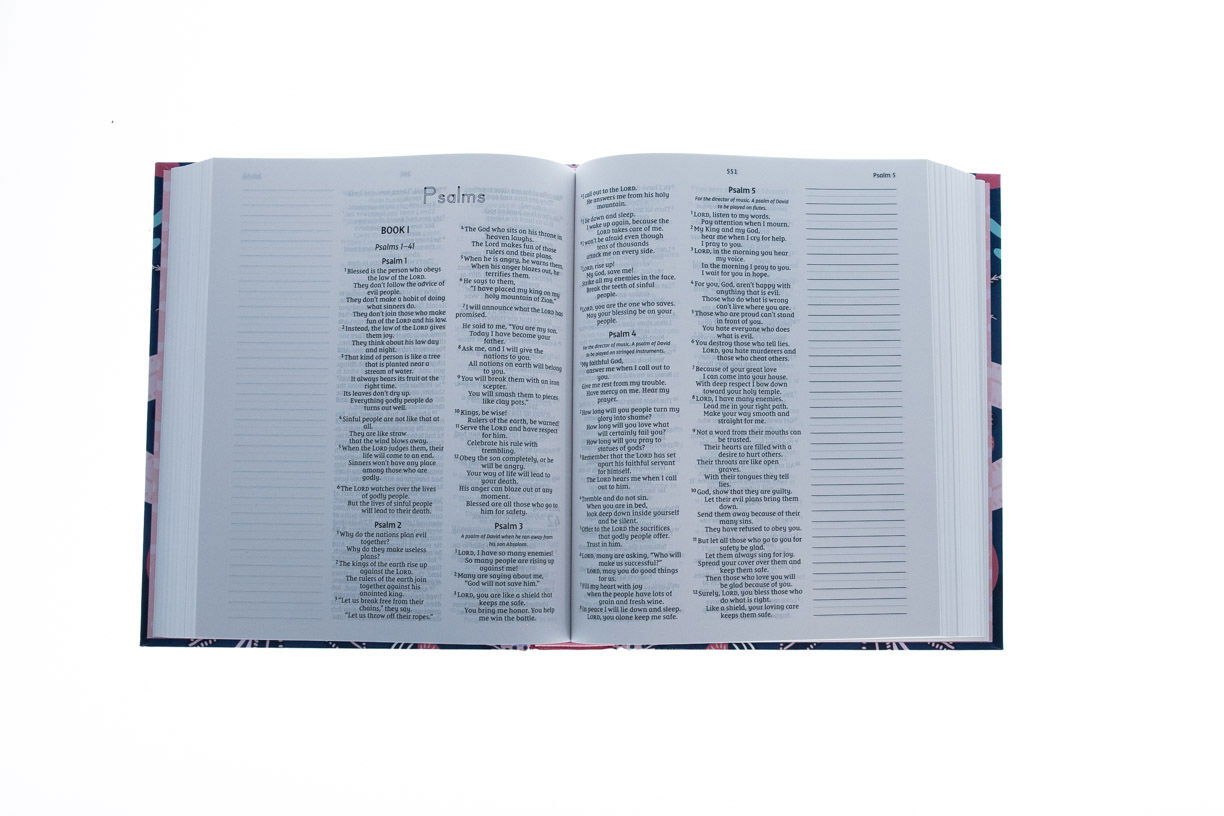 Psalms
BOOK I
Psalms 1–41
Psalm 1
1Blessed is the person who obeys
the law of the LORD.
They don't follow the advice of
evil people.
They don't make a habit of doing
what sinners do.
They don't join those who make
fun of the LORD and his law.
2Instead, the law of the LORD gives
them joy.
They think about his law day
and night.
3That kind of person is like a tree
that is planted near a
stream of water.
It always bears its fruit at the
right time.
Its leaves don't dry up.
Everything godly people do
turns out well.
4Sinful people are not like that at
all.
They are like straw
that the wind blows away.
5When the LORD judges them, their
life will come to an end.
Sinners won't have any place
among those who are
godly.
6The LORD watches over the lives
of godly people.
But the lives of sinful people
will lead to their death.
Psalm 2
1Why do the nations plan evil
together?
Why do they make useless
plans?
2The kings of the earth rise up
against the LORD.
The rulers of the earth join
together against his
anointed king.
3"Let us break free from their
chains," they say.
"Let us throw off their ropes."
4The God who sits on his throne in
heaven laughs.
The Lord makes fun of those
rulers and their plans.
5When he is angry, he warns them.
When his anger blazes out, he
terrifies them.
6He says to them,
"I have placed my king on my
holy mountain of Zion."
7I will announce what the LORD has
promised.
He said to me, "You are my son.
Today I have become your
father.
8Ask me, and I will give the
nations to you.
All nations on earth will belong
to you.
9You will break them with an iron
scepter.
You will smash them to pieces
like clay pots."
10Kings, be wise!
Rulers of the earth, be warned
11Serve the LORD and have respect
for him.
Celebrate his rule with
trembling.
12Obey the son completely, or he
will be angry.
Your way of life will lead to
your death.
His anger can blaze out at any
moment.
Blessed are all those who go to
him for safety.
Psalm 3
A psalm of David when he ran away from
his son Absalom.
1LORD, I have so many enemies!
So many people are rising up
against me!
2Many are saying about me,
"God will not save him."
3LORD, you are like a shield that
keeps me safe.
You bring me honor. You help
me win the battle.
551
Psalm 5
4I call out to the LORD.
He answers me from his holy
mountain.
5I lie down and sleep.
I wake up again, because the
LORD takes care of me.
6I won't be afraid even though
tens of thousands
attack me on every side.
7LORD, rise up!
My God, save me!
Strike all my enemies in the face.
Break the teeth of sinful
people.
8LORD, you are the one who saves.
May your blessing be on your
people.
Psalm 4
For the director of music. A psalm of David
to be played on stringed instruments.
1My faithful God,
answer me when I call out to
you.
Give me rest from my trouble.
Have mercy on me. Hear my
prayer.
2How long will you people turn my
glory into shame?
How long will you love what
will certainly fail you?
How long will you pray to
statues of gods?
3Remember that the LORD has set
apart his faithful servant
for himself.
The LORD hears me when I call
out to him.
4Tremble and do not sin.
When you are in bed,
look deep down inside yourself
and be silent.
5Offer to the LORD the sacrifices
that godly people offer.
Trust in him.
6LORD, many are asking, "Who will
make us successful?"
LORD, may you do good things
for us.
7Fill my heart with joy
when the people have lots of
grain and fresh wine.
8In peace I will lie down and sleep.
LORD, you alone keep me safe.
Psalm 5
For the director of music. A psalm of David
to be played on flutes.
1LORD, listen to my words.
Pay attention when I mourn.
2My King and my God,
hear me when I cry for help.
I pray to you.
3LORD, in the morning you hear
my voice.
In the morning I pray to you.
I wait for you in hope.
4For you, God, aren't happy with
anything that is evil.
Those who do what is wrong
can't live where you are.
5Those who are proud can't stand
in front of you.
You hate everyone who does
what is evil.
6You destroy those who tell lies.
LORD, you hate murderers and
those who cheat others.
7Because of your great love
I can come into your house.
With deep respect I bow down
toward your holy temple.
8LORD, I have many enemies.
Lead me in your right path.
Make your way smooth and
straight for me.
9Not a word from their mouths can
be trusted.
Their hearts are filled with a
desire to hurt others.
Their throats are like open
graves.
With their tongues they tell
lies.
10God, show that they are guilty.
Let their evil plans bring them
down.
Send them away because of their
many sins.
They have refused to obey you.
11But let all those who go to you for
safety be glad.
Let them always sing for joy.
Spread your cover over them and
keep them safe.
Then those who love you will
be glad because of you.
12Surely, LORD, you bless those who
do what is right.
Like a shield, your loving care
keeps them safe.